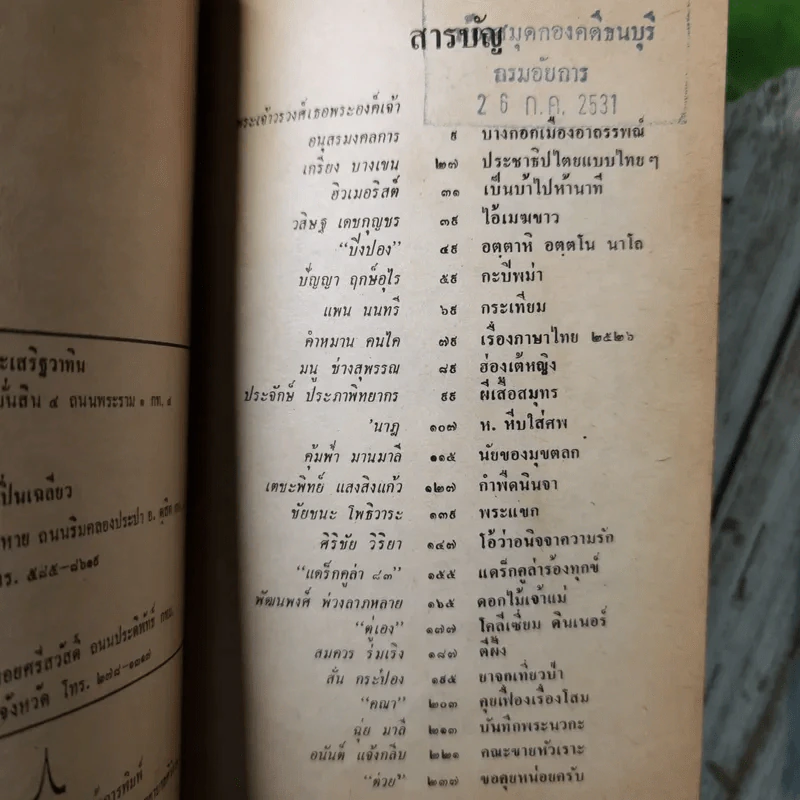 สารบัญ
สมุดกองคดีธนบุรี
กรมอัยการ
2 6 ก.ค. 2531
พระเจ้าวรวงศ์เธอพระองค์เจ้า
อนุสรมงคลการ ๙ บางกอกเมืองอาถรรพณ์
เกรียง บางเขน ๒๗ ประชาธิปไตยแบบไทย ๆ
ฮิวเมอริสต์ ๓๑ เป็นบ้าไปห้านาที
วสิษฐ เดชกุญชร ๓๙ ไอ้เมฆขาว
“ปิงปอง” ๔๙ อตฺตาหิ อตฺตโน นาโถ
ปัญญา ฤกษ์อุไร ๕๙ กะปิพม่า
แพน นนทรี ๖๙ กระเทียม
คำหมาน คนไค ๗๙ เรื่องภาษาไทย ๒๕๒๖
มนู ช่างสุพรรณ ๘๙ ฮ่องเต้หญิง
ประจักษ์ ประภาพิทยากร ๙๙ ผีเสื้อสมุทร
'นาฏ ๑๐๗ ห. หีบใส่ศพ
คุ้มฟ้า มานมาลี ๑๑๕ นัยของมุขตลก
เตชะพิทย์ แสงสิงแก้ว ๑๒๗ กำพืดนินจา
ชัยชนะ โพธิวาระ ๑๓๙ พระแขก
ศิริชัย วิริยา ๑๔๗ โอ้ว่าอนิจจาความรัก
“แดร็กคูล่า ๘๓” ๑๕๕ แดร็กคูล่าร้องทุกข์
พัฒนพงศ์ พ่วงลาภหลาย ๑๖๕ ดอกไม้เจ้าแม่
“ตู่เอง” ๑๗๗ โคลีเซี่ยม ดินเนอร์
สมควร ร่มเริง ๑๘๗ ตีผึ้ง
สั้น กระป๋อง ๑๙๕ ยาจกเที่ยวบ้า
“คณา” ๒๐๓ คุยเฟื่องเรื่องโสม
ฉุ่ย มาลี ๒๑๓ บันทึกพระนวกะ
อนันต์ แจ้งกลีบ ๒๒๑ คณะขายหัวเราะ
“ต่วย” ๒๓๗ ขอคุยหน่อยครับ
ะเสริฐวาทิน
ถนนพระราม ๑ กท. ๕
ปิ่นเฉลียว
ถนนริมคลองประปา อ. ดุสิต
ทร. ๕๘๕-๘๖๑๙
อยศรีสวัสดิ์ ถนนประดิพัทธ์ กทม.
จังหวัด โทร. ๒๗๘-๑๓๑๗
การพิมพ์